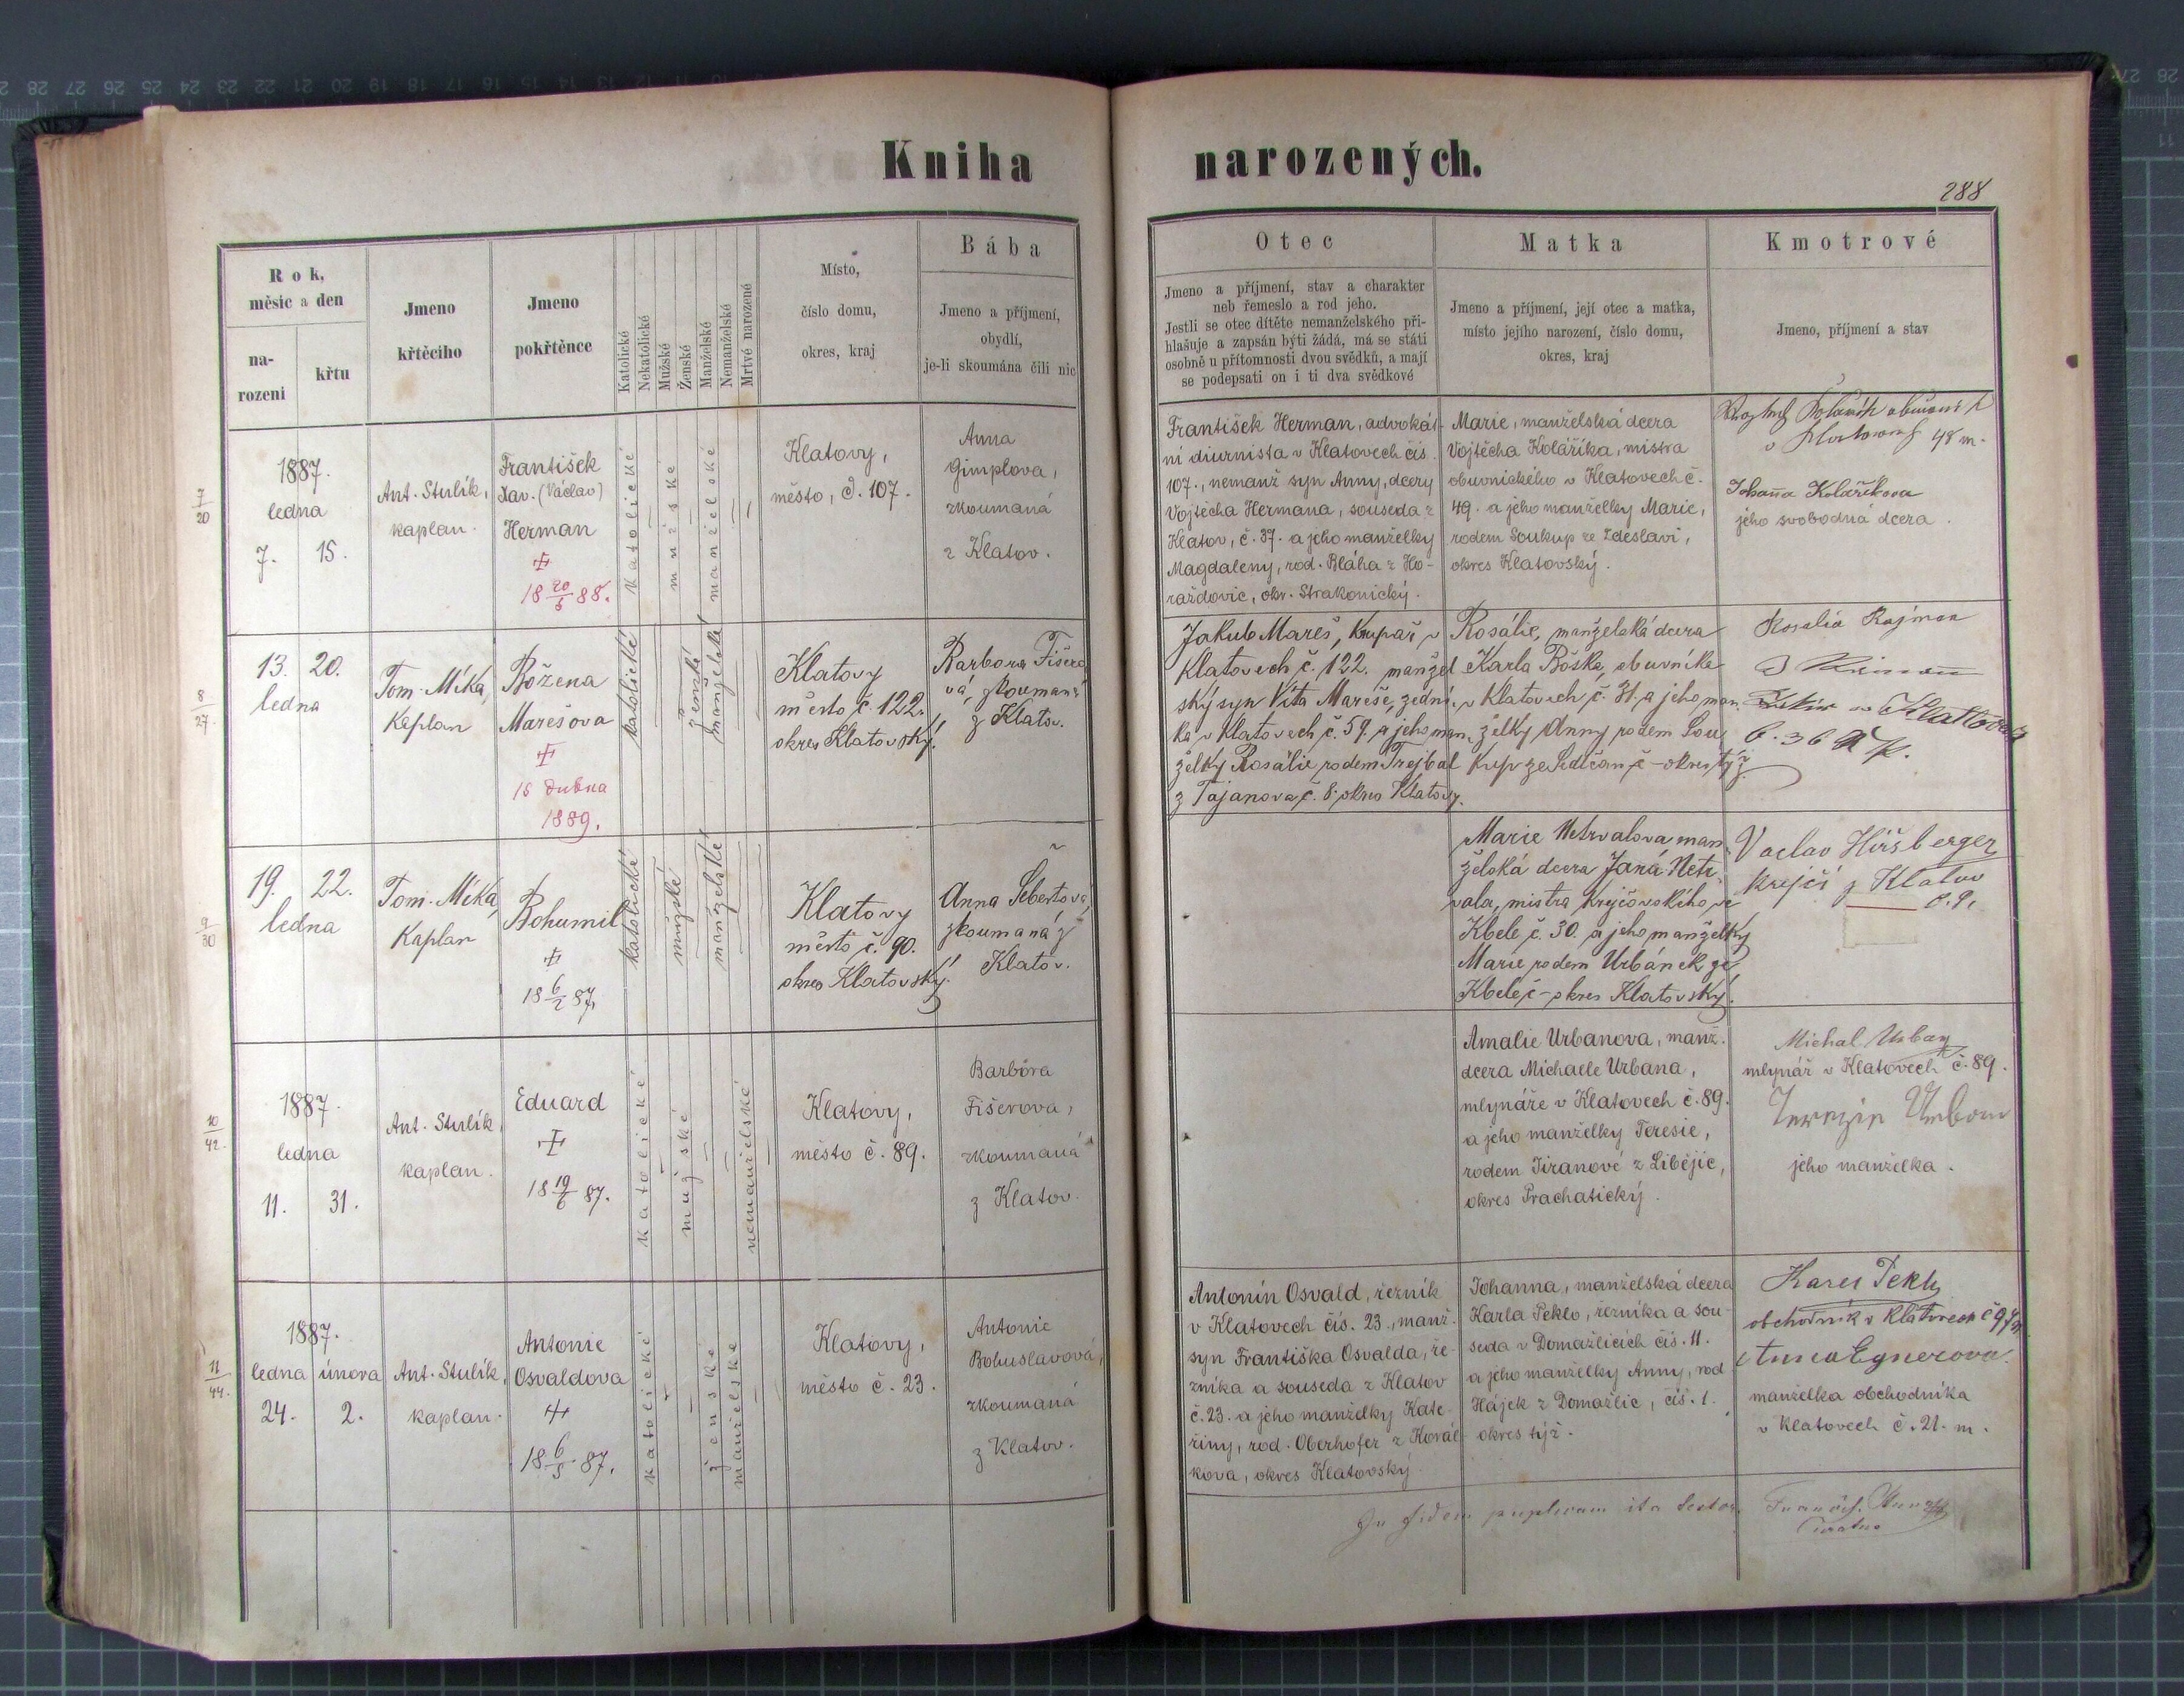 Kniha narozených.
288
Rok, měsíc a den
na-
rozeni
křtu
Jmeno
křtěcího
Jmeno
pokřtěnce
Katolické
Nekatolické
Mužské
Ženské
Manželské
Nemanželské
Mrtvé narozené
Místo,
číslo domu,
okres, kraj
Bába
Jmeno a příjmení,
obydlí,
je-li skoumána čili nic
Otec
Jmeno a příjmení, stav a charakter
neb řemeslo a rod jeho.
Jestli se otec dítěte nemanželského při-
hlašuje a zapsán býti žádá, má se státi
osobně u přítomnosti dvou svědků, a mají
se podepsati on i ti dva svědkové
Matka
Jmeno a příjmení, její otec a matka,
místo jejího narození, číslo domu,
okres, kraj
Kmotrové
Jmeno, příjmení a stav
7
20
1887.
ledna
7. 15.
Ant. Stulík,
kaplan.
František
Xav. (Václav)
Herman
18 20/5 88.
katolické
mužské
manželské
Klatovy,
město, č. 107.
Anna
Gimplova,
zkoumaná
z Klatov.
František Herman, advokát-
ní diurnista v Klatovech čís.
107., nemanž syn Anny, dcery
Vojtěcha Hermana, souseda z
Klatov, č. 37. a jeho manželky
Magdaleny, rod. Bláha z Ho-
raždovic, okr. Strakonický.
Marie, manželská dcera
Vojtěcha Kolaříka, mistra
obuvnického v Klatovech č.
49. a jeho manželky Marie,
rodem Soukup ze Zdeslavi,
okres Klatovský.
48 m.
Johaňa Kolaříkova
jeho svobodná dcera.
8
27.
13. 20.
ledna
Tom. Míka,
Kaplan
Božena
Marešova
15 dubna
1889.
katolické
ženské
manželské
Klatovy
město č. 122.
okres Klatovský.
Barbora Fišero
vá, zkoumaná
z Klatov.
Jakub Mareš, krupař v
Klatovech č. 122. manžel
ský syn Víta Mareše, zední-
ka v Klatovech č. 59. a jeho man-
želky Rosálie rodem Trejbal
z Tajanova č. 8. okres Klatovy.
Rosálie, manželská dcera
Karla Böška, obuvníka
v Klatovech č. 31. a jeho man.
želky Anny rodem Sou
kup ze Sedlčan č – okres týž
Rosalia Rajman
Klatovech
č. 36
9
30
19. 22.
ledna
Tom. Míka,
Kaplan
Bohumil
18 6/2 87.
katolické
mužské
manželské
Klatovy
město č. 90.
okres Klatovský.
Anna Šebertova,
zkoumaná z
Klatov.
Marie Netrvalova man-
želská dcera Jana Netr-
vala, mistra krejčovského ve
Kbele č. 30. a jeho manželky
Marie rodem Urbánek ze
Kbele č – okres Klatovský.
Vaclav Hiršberger
krejčí z Klatov
10
42.
1887.
ledna
11. 31.
Ant. Stulík,
kaplan.
Eduard
18 19/6 87.
katolické
mužské
nemanželské
Klatovy,
město č. 89.
Barbora
Fišerova,
zkoumaná
z Klatov.
Amalie Urbanova, manž.
dcera Michaele Urbana,
mlynáře v Klatovech č. 89.
a jeho manželky Teresie,
rodem Jiranové z Libějic,
okres Prachatický.
Michal Urban
mlynář v Klatovech č. 89.
jeho manželka.
11
44.
1887.
ledna února
24. 2.
Ant. Stulík,
kaplan.
Antonie
Osvaldova
18 6/5 87.
katolické
ženské
manželské
Klatovy,
město č. 23.
Antonie
Bohuslavová,
zkoumaná
z Klatov.
Antonín Osvald, řezník
v Klatovech čís. 23., manž.
syn Františka Osvalda, ře-
zníka a souseda z Klatov
č. 23. a jeho manželky Kate-
řiny, rod. Oberhofer z Korál-
kova, okres Klatovský.
Johanna, manželská dcera
Karla Peklo, řezníka a sou-
seda v Domažlicích čís. 11.
a jeho manželky Anny, rod
Hájek z Domažlic, čís. 1.
okres týž.
Karel Peklo
obchodník v Klatovech
Anna Egnerova
manželka obchodníka
v Klatovech č. 21. m.
In fidem